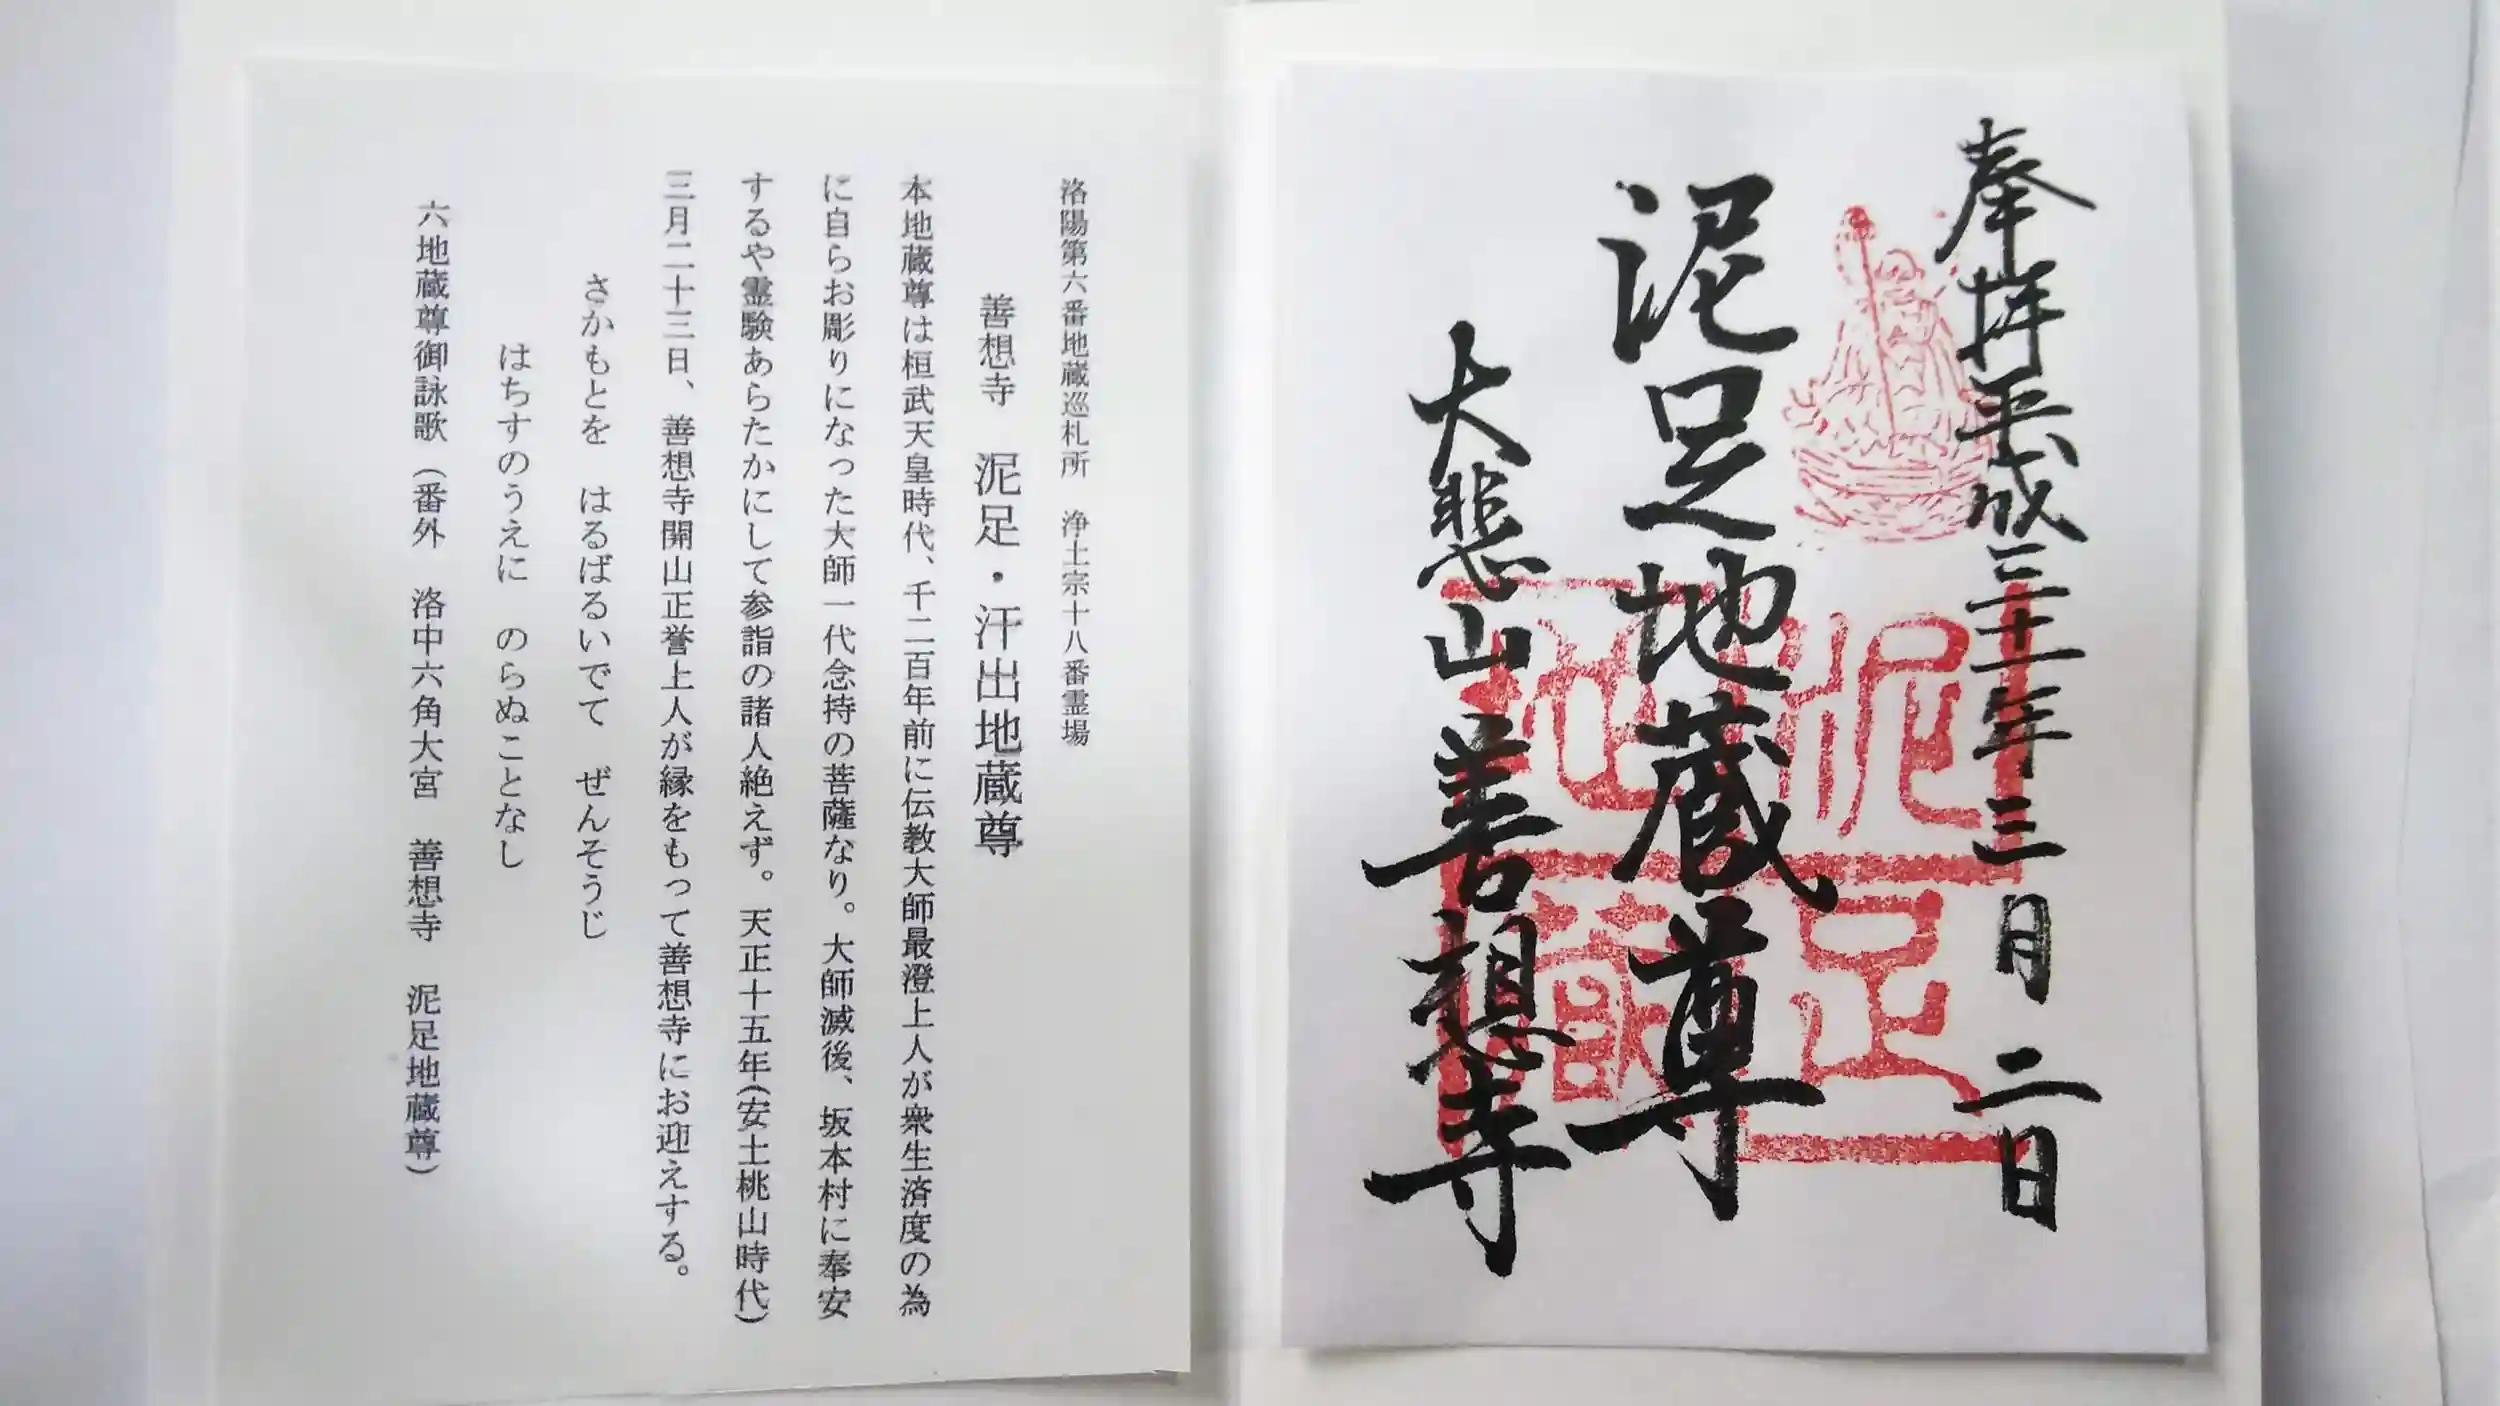 奉拝 平成三十一年三月二日
泥足地蔵尊
大悲山 善想寺
泥足
地蔵
洛陽第六番地蔵巡札所 浄土宗十八番霊場
善想寺 泥足・汗出地蔵尊
本地蔵尊は桓武天皇時代、千二百年前に伝教大師最澄上人が衆生済度の為
に自らお彫りになった大師一代念持の菩薩なり。大師滅後、坂本村に奉安
するや霊験あらたかにして参詣の諸人絶えず。天正十五年(安土桃山時代)
三月二十三日、善想寺開山正誉上人が縁をもって善想寺にお迎えする。
さかもとを はるばるいでて ぜんそうじ
はちすのうえに のらぬことなし
六地蔵尊御詠歌(番外 洛中六角大宮 善想寺 泥足地蔵尊)